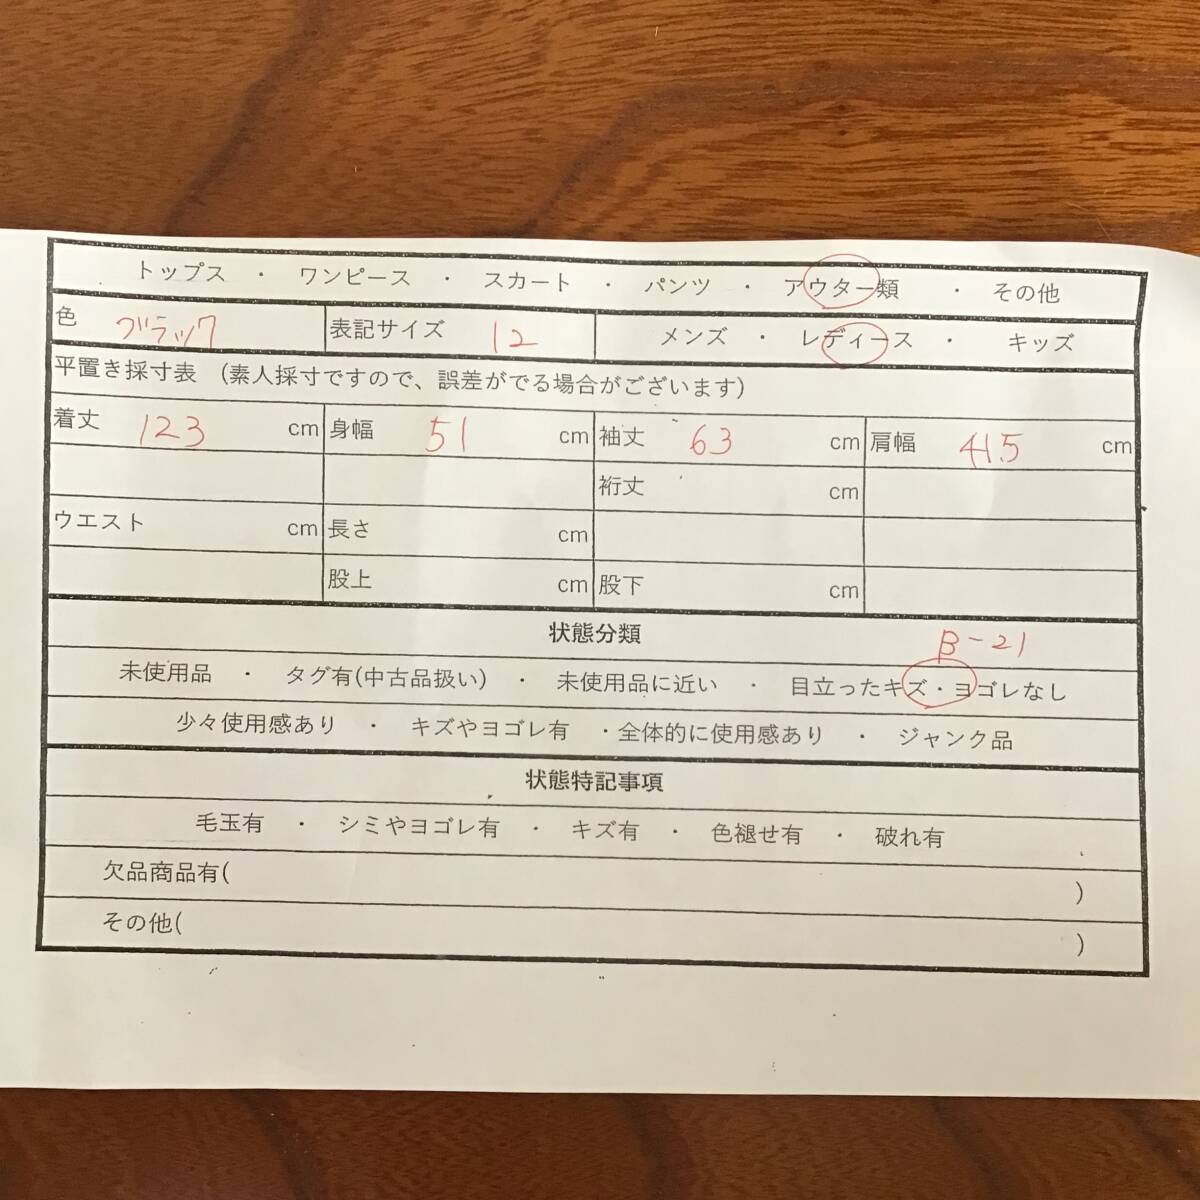 トップス ・ ワンピース ・ スカート ・ パンツ ・ アウター類 ・ その他
色 ブラック 表記サイズ 12 メンズ ・ レディース ・ キッズ
平置き採寸表 (素人採寸ですので、誤差がでる場合がございます)
着丈 123 cm 身幅 51 cm 袖丈 63 cm 肩幅 41.5 cm
裄丈 cm
ウエスト cm 長さ cm
股上 cm 股下 cm
状態分類 B-21
未使用品 ・ タグ有(中古品扱い) ・ 未使用品に近い ・ 目立ったキズ・ヨゴレなし
少々使用感あり ・ キズやヨゴレ有 ・全体的に使用感あり ・ ジャンク品
状態特記事項
毛玉有 ・ シミやヨゴレ有 ・ キズ有 ・ 色褪せ有 ・ 破れ有
欠品商品有( )
その他( )